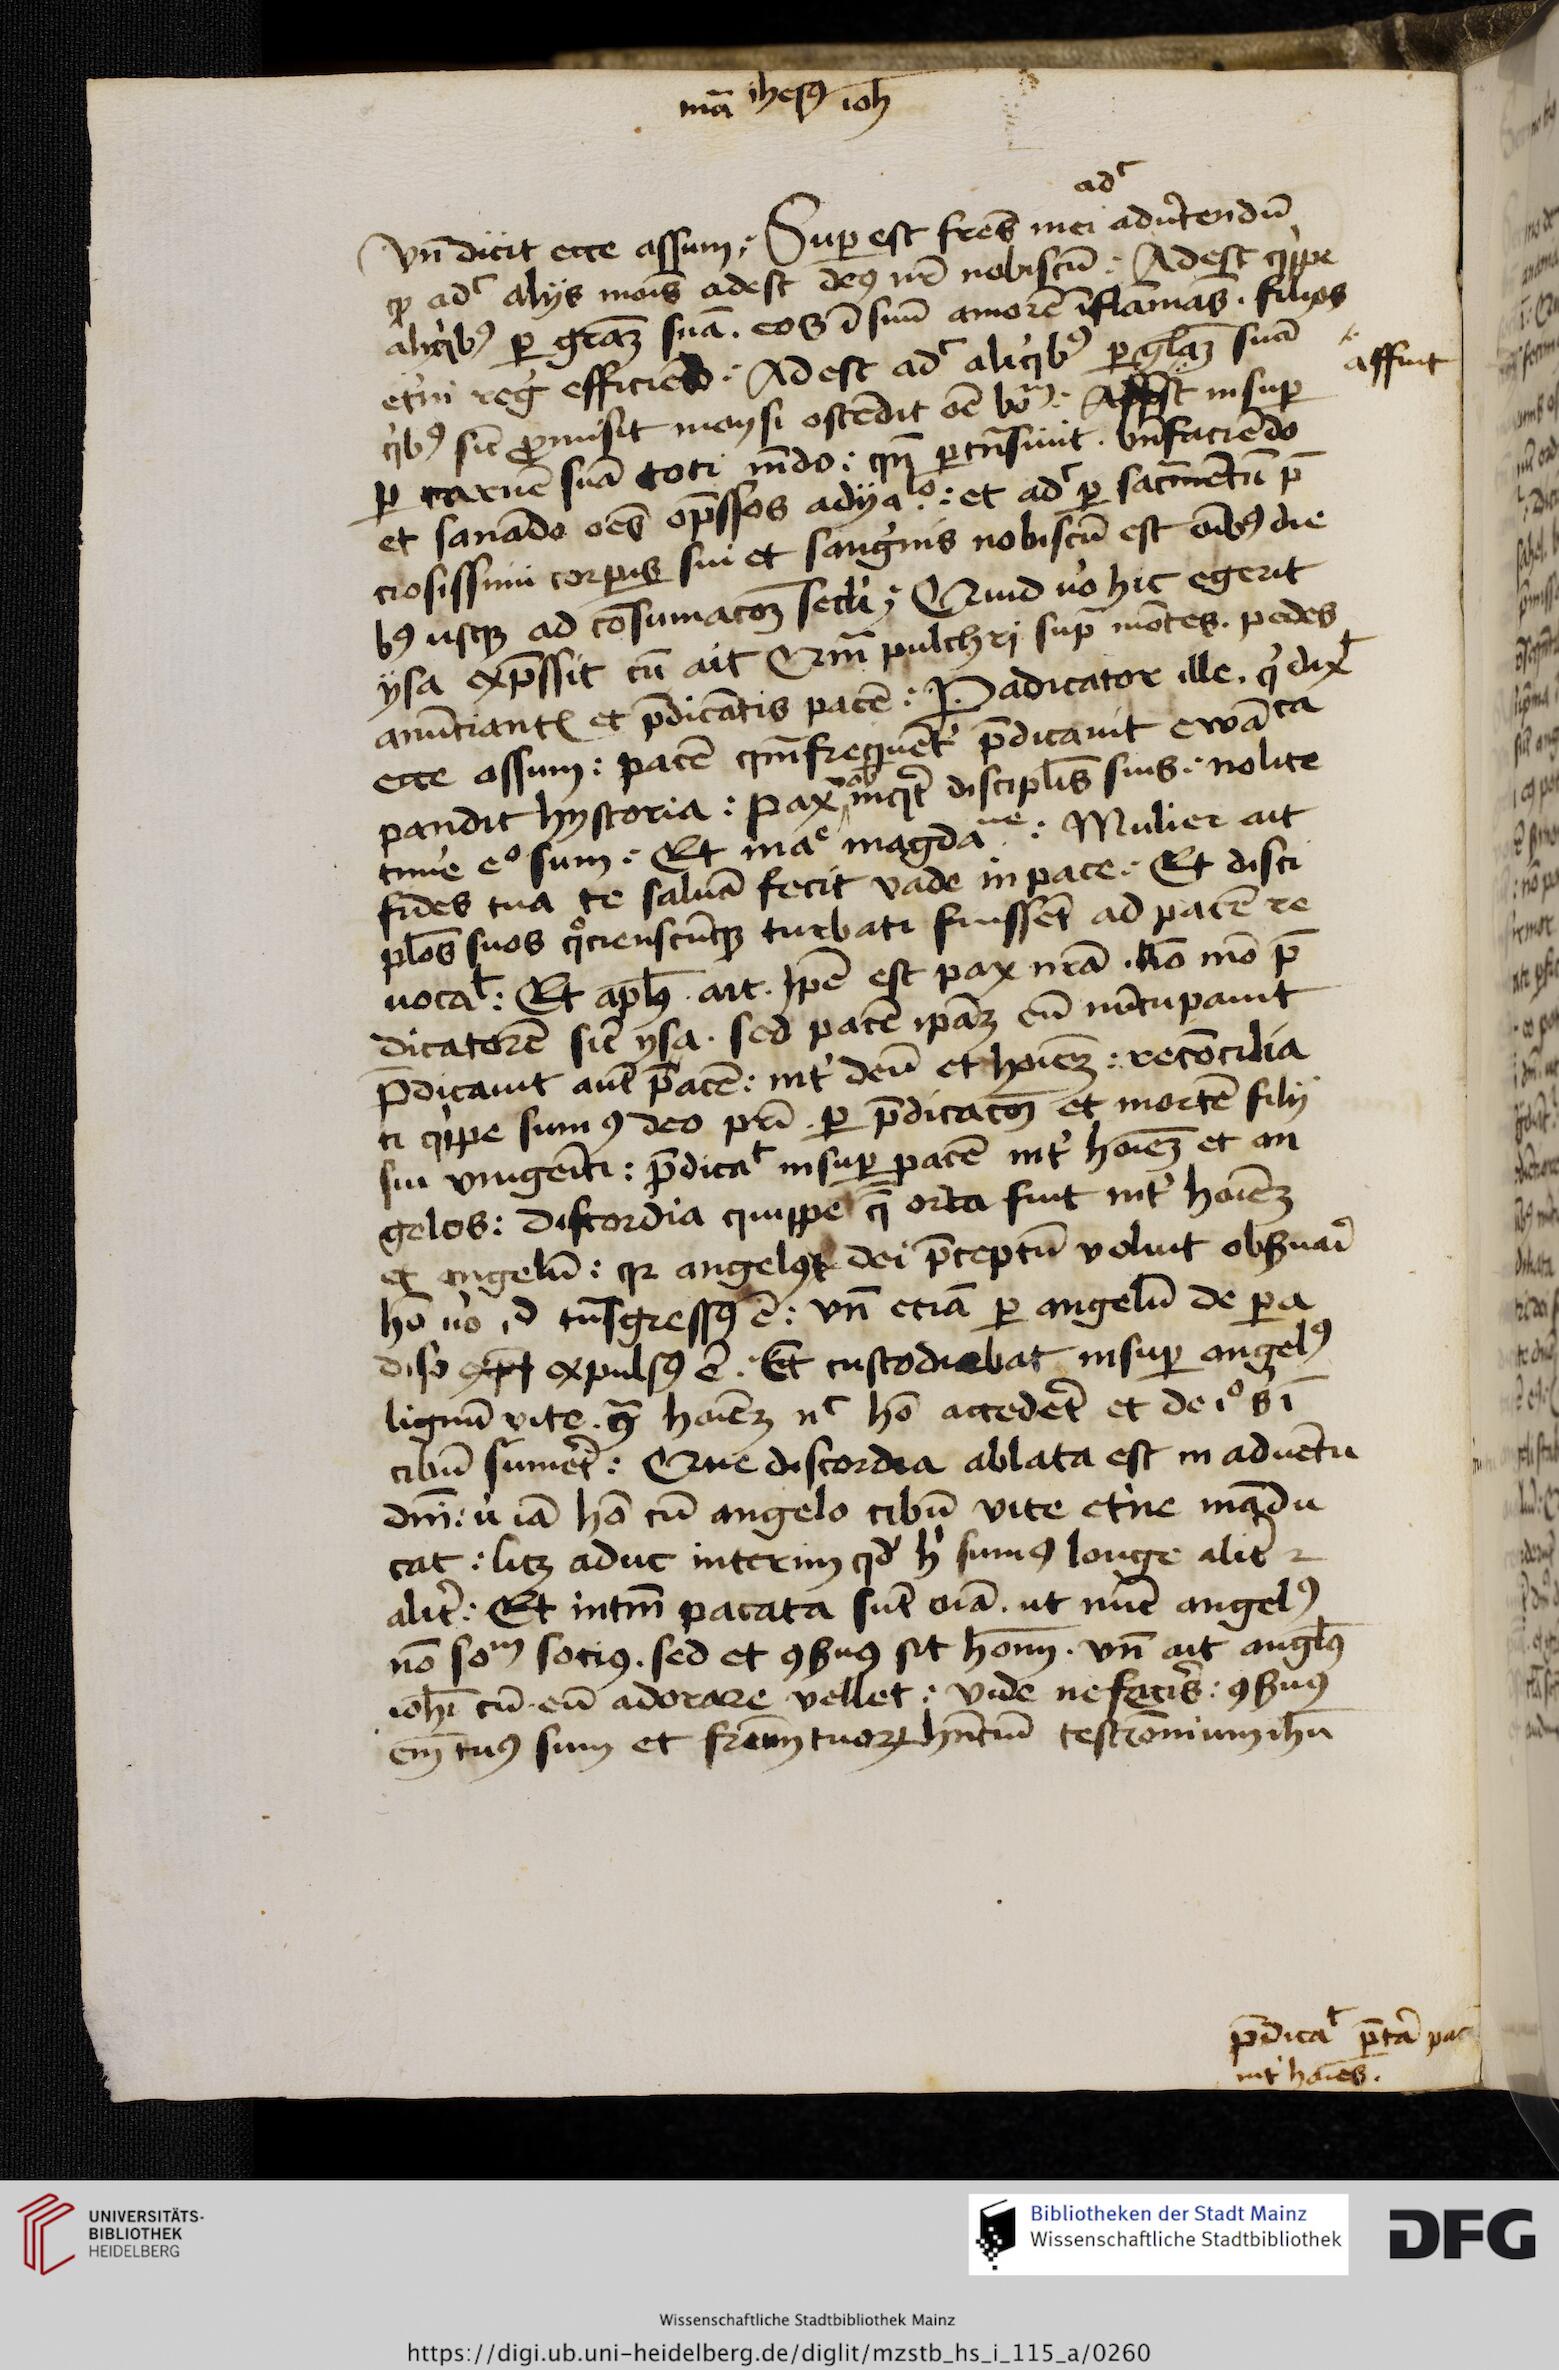 mā ihesꝰ ioh̄
adᶜ
Vn̄ dicit ecce assum: Sup est fres̄ mei aduertendū
ꝙ adᶜ alijs mois̄ adest deꝰ nr̄ nobiscū: Adest qͥppe
aliqͥbꝰ ꝑ graꝫ suā. eos ī suū amorē īflāmas̄. filios
et̓ni reg̓ efficiēdo: Adest adᶜ aliqͥbꝰ ꝑ gl̄aꝫ suā
affuit
qͥbꝰ sic̄ ꝓmisit moysi ostēdit oē boᵐ: insuꝑ
ꝑ carnē suā toti mūdo: qn̄ ꝑtn̄siuit. bn̄faciēdo
et sanādo oēs op̄ssos adyalᵒ: et adᶜ ꝑ sacm̄entū p̄
ciosissimi corꝑis sui et sang̓nis nobiscū est oībꝰ die
bꝰ usqꝫ ad cōsumacōꝫ secl̓i: Quid v̓o hic egerit
ysa exp̄ssit cū ait Qm̄ pulchrj sup̄ mōtes. pedes
anūciantꝭ et p̄dicātis pacē: Pradicator ille. qͥ dixᵗ
ecce assum: pacē qm̄ frequēt̓ p̄dicauit ewāᶜᵃ
pandit hystoria: Pax uob inqt̓ discipl̄is suis: nolite
time eᵒ sum: Et maᵉ magdaⁿᵉ: Mulier ait
fides tua te saluā fecit vade in pace: Et disci
plōs suos qͦcienscūqꝫ turbati fuissēt ad pacē re
uocaᵗ: Et apl̄s. ait. Ipē est pax nrā. Nō mō p̄
dicatorē sic̄ ysa. sed pacē ipāꝫ eū nūcupauit
P̄dicauit aut̄ pacē: int̓ deū et hoīeꝫ: recōcilia
ti qͥppe sumꝰ deo pr̄i. ꝑ p̄dicacōꝫ et mortē filij
sui vnigeīti: p̄dicaᵗ insuꝑ pacē int̓ hoīeꝫ et an
gelos: Discordia quippe q̄ orta fuit int̓ hoīeꝫ
et angelū: qꝛ angelꝰ dei p̄ceptū voluit obs̓uar̄
hō v̓o id tn̄sgressꝰ ē: vn̄ eciā ꝑ angelū de ꝑa
diso expulsꝰ ē. Et custodiebat insuꝑ angelꝰ
lignū vite. hoīeꝫ nᶜ hō accedet̓ et de iᵒ s ī
cibū sumet̓: Que discordia ablata est in aduētu
dn̄i: v̓ iā hō cū angelo cibū vite et̓ne mādu
cat: licꝫ aduc interim qd̓ h̓ sumꝰ longe alit̓ ꝛ
alit̓: Et intm̄ pacata sūt oīa. ut nūc angelꝰ
nō soᵐ sociꝰ. sed et ꝯs̓uꝰ sit hoīm. vn̄ ait angl̄ꝰ
ioh̄i cū eū adorare vellet: vide ne fecis̓: ꝯs̓uꝰ
em̄ tuꝰ sum et fr̄um tuoꝝ hn̄tiū testiōnium ih̄u
p̄dicaᵗ pac
int̓ hoīes.
UNIVERSITÄTS-
BIBLIOTHEK
HEIDELBERG
Bibliotheken der Stadt Mainz
Wissenschaftliche Stadtbibliothek
DFG
Wissenschaftliche Stadtbibliothek Mainz
https://digi.ub.uni-heidelberg.de/diglit/mzstb_hs_i_115_a/0260